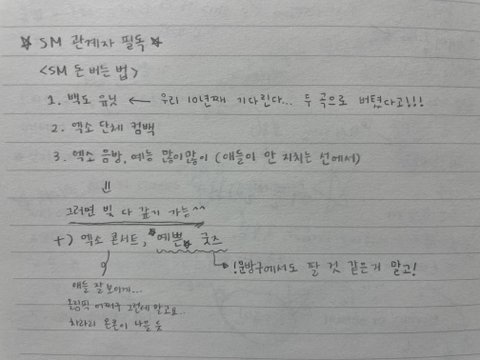 ☆ SM 관계자 필독 ☆
<SM 돈 버는 법>
1. 백도 유닛 ← 우리 10년째 기다린다... 두 곡으로 버텼다고!!!
2. 엑소 단체 컴백
3. 엑소 음방, 예능 많이많이 (애들이 안 지치는 선에서)
⇓
그러면 빚 다 갚기 가능^^
+) 엑소 콘서트, ☆예쁜☆ 굿즈
↳ !문방구에서도 팔 것 같은거 말고!
애들 잘 보이게...
올림픽 어쩌구 그런데 말고요..
차라리 온콘이 나을 듯